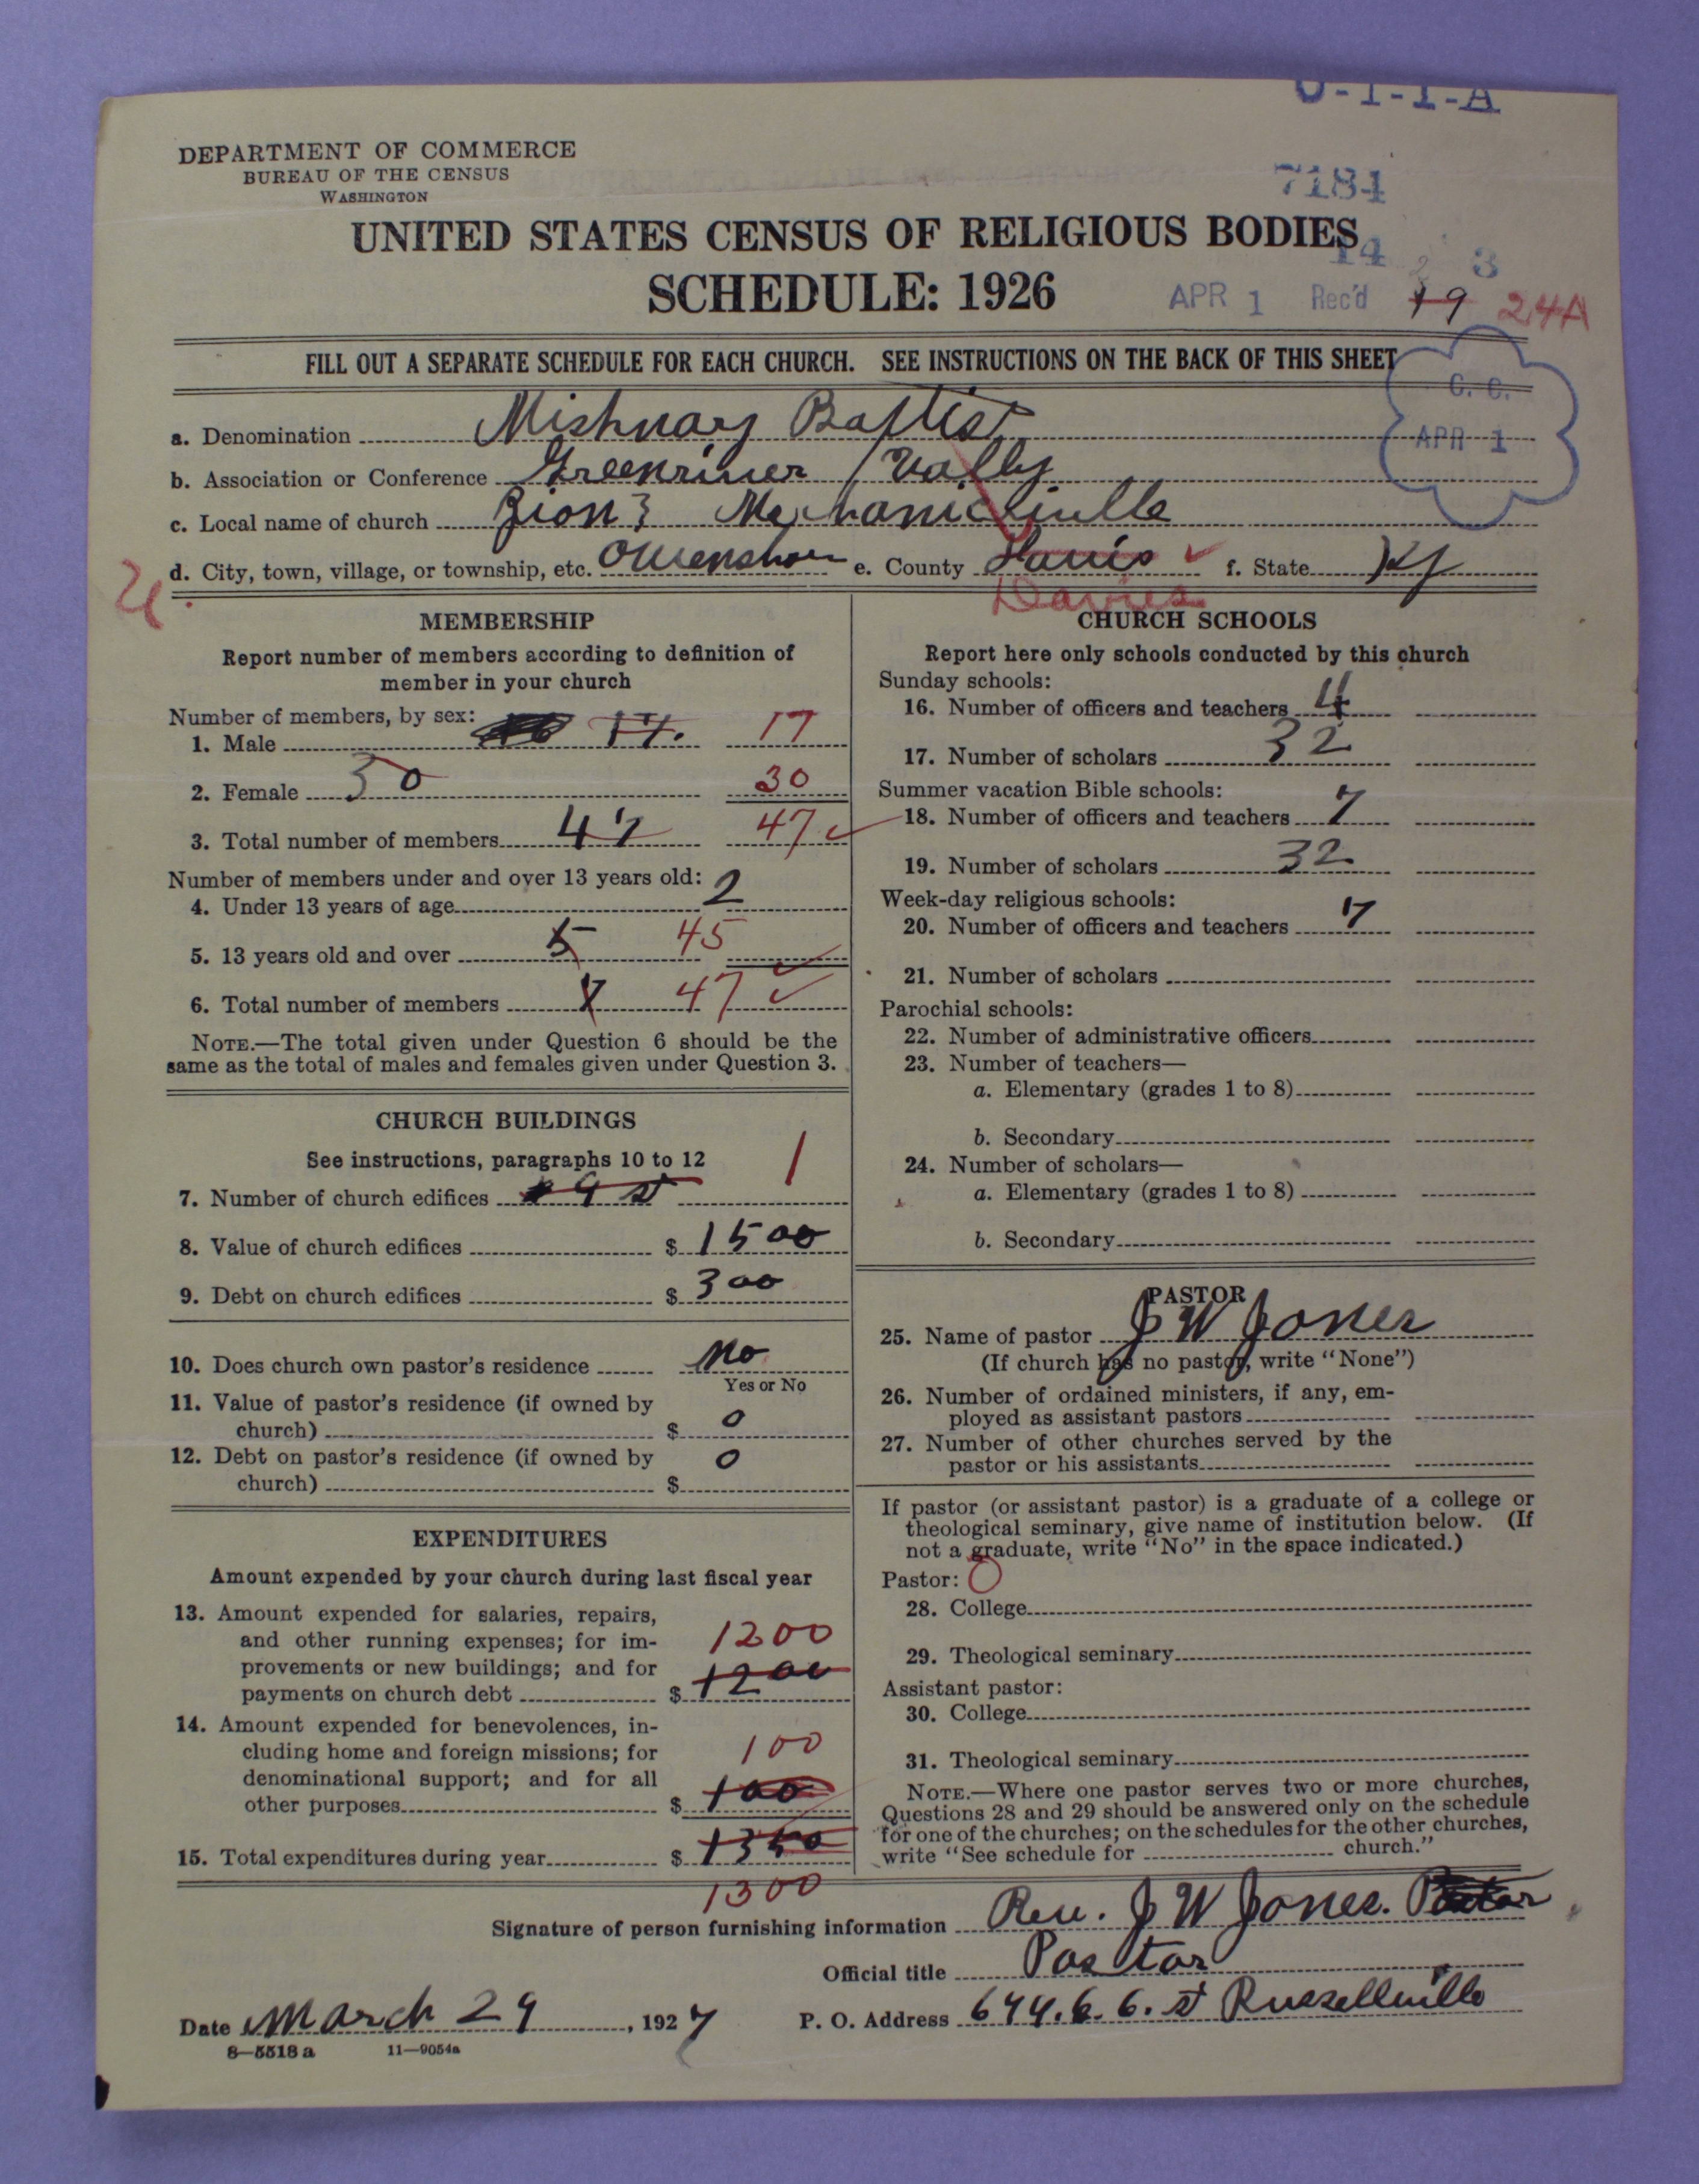 U-1-1-A
DEPARTMENT OF COMMERCE
BUREAU OF THE CENSUS
WASHINGTON
7184
UNITED STATES CENSUS OF RELIGIOUS BODIES
14 3
SCHEDULE: 1926
APR 1 Rec'd 19 24A
FILL OUT A SEPARATE SCHEDULE FOR EACH CHURCH. SEE INSTRUCTIONS ON THE BACK OF THIS SHEET
C. C.
APR 1
a. Denomination Mishnary Baptist
b. Association or Conference Greenriver Vally
c. Local name of church Zion Mechanicsville
d. City, town, village, or township, etc. Owensboro e. County Davis f. State Ky
Davies
MEMBERSHIP
Report number of members according to definition of
member in your church
Number of members, by sex:
1. Male 17. 17
2. Female 30 30
3. Total number of members 47 47
Number of members under and over 13 years old:
4. Under 13 years of age 2
5. 13 years old and over 5 45
6. Total number of members 7 47
NOTE.—The total given under Question 6 should be the
same as the total of males and females given under Question 3.
CHURCH BUILDINGS
See instructions, paragraphs 10 to 12
7. Number of church edifices 9 st 1
8. Value of church edifices $ 1500
9. Debt on church edifices $ 300
10. Does church own pastor's residence No
Yes or No
11. Value of pastor's residence (if owned by
church) $ 0
12. Debt on pastor's residence (if owned by
church) $ 0
EXPENDITURES
Amount expended by your church during last fiscal year
13. Amount expended for salaries, repairs,
and other running expenses; for im-
provements or new buildings; and for
payments on church debt $ 1200
1200
14. Amount expended for benevolences, in-
cluding home and foreign missions; for
denominational support; and for all
other purposes $ 100
100
15. Total expenditures during year $ 1350
1300
CHURCH SCHOOLS
Report here only schools conducted by this church
Sunday schools:
16. Number of officers and teachers 4
17. Number of scholars 32
Summer vacation Bible schools:
18. Number of officers and teachers 7
19. Number of scholars 32
Week-day religious schools:
20. Number of officers and teachers 7
21. Number of scholars
Parochial schools:
22. Number of administrative officers
23. Number of teachers—
a. Elementary (grades 1 to 8)
b. Secondary
24. Number of scholars—
a. Elementary (grades 1 to 8)
b. Secondary
PASTOR
25. Name of pastor J W Jones
(If church has no pastor, write "None")
26. Number of ordained ministers, if any, em-
ployed as assistant pastors
27. Number of other churches served by the
pastor or his assistants
If pastor (or assistant pastor) is a graduate of a college or
theological seminary, give name of institution below. (If
not a graduate, write "No" in the space indicated.)
Pastor: 0
28. College
29. Theological seminary
Assistant pastor:
30. College
31. Theological seminary
NOTE.—Where one pastor serves two or more churches,
Questions 28 and 29 should be answered only on the schedule
for one of the churches; on the schedules for the other churches,
write "See schedule for church."
Signature of person furnishing information Rev. J W Jones. Pastor
Official title Pastor
Date March 29, 1927 P. O. Address 644. E. 6. st Russellville
8—5518 a 11—9054a